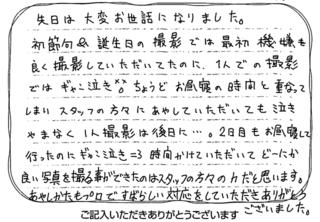 先日は大変お世話になりました。
初節句&誕生日の撮影では最初機嫌も
良く撮影していただいてたのに、1人での撮影
ではギャン泣き××。ちょうどお昼寝の時間と重なって
しまいスタッフの方々にあやしていただいても泣き
やまなく1人撮影は後日に…。2日目もお昼寝して
行ったのにギャン泣き=3 時間かけていただいてどーにか
良い写真を撮る事ができたのはスタッフの方々の力だと思います。
あやしかたもプロですばらしい対応をしていただきありがとう
ございました。
ご記入いただきありがとうございます